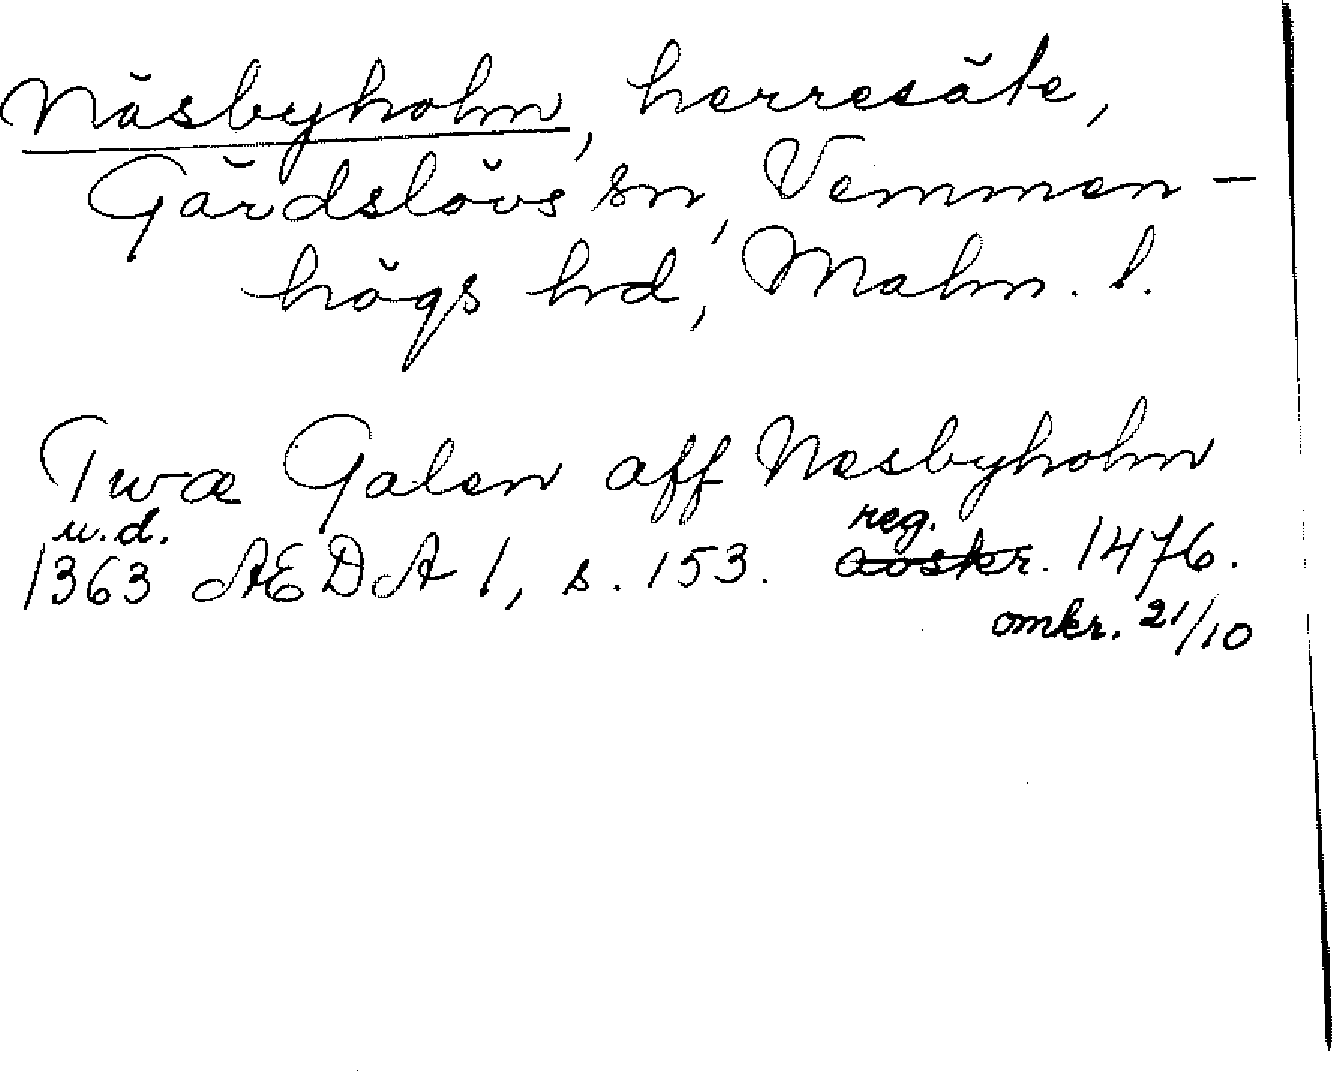 Näsbyholm, herresäte,
Gärdslövs sn, Vemmen-
högs hd, Malm. l.
Twæ Galen aff Næsbyholm
u.d. reg.
1363 AEDA 1, s. 153. avskr. 1476.
omkr. 21/10